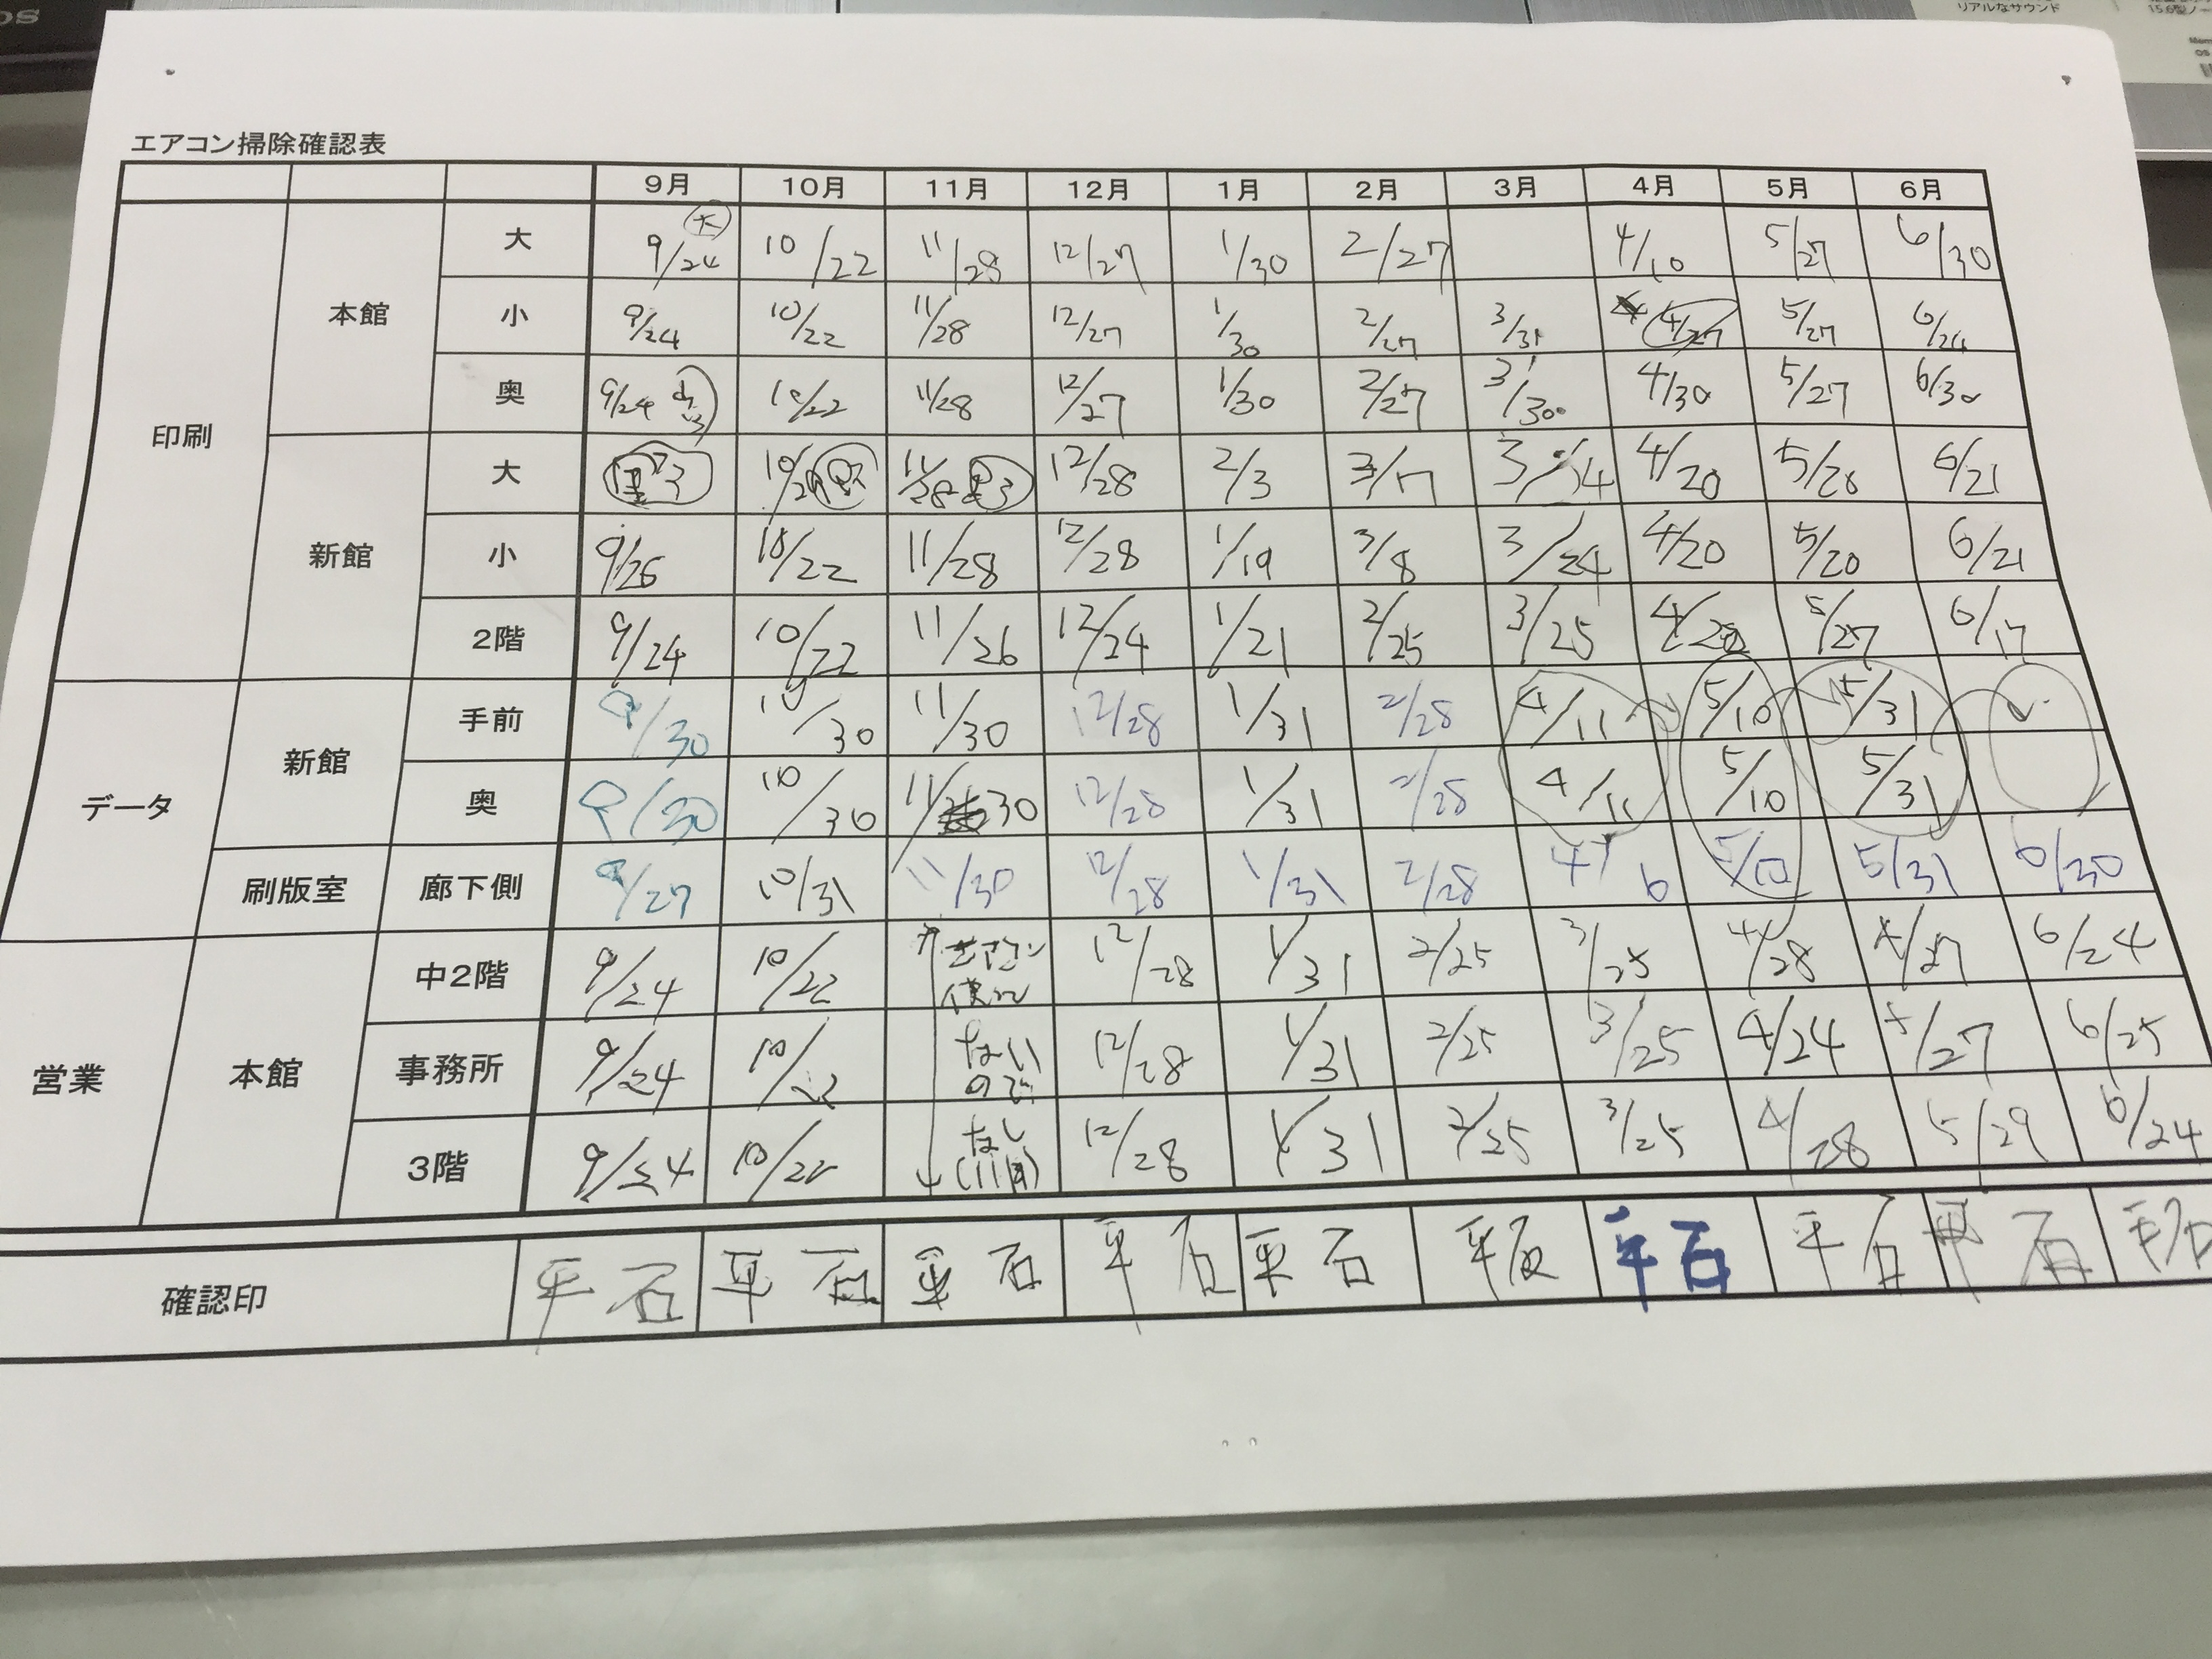 リアルなサウンド
エアコン掃除確認表
9月 10月 11月 12月 1月 2月 3月 4月 5月 6月
印刷 本館 大 9/24 大 10/22 11/28 12/27 1/30 2/27 4/10 5/27 6/30
小 9/24 10/22 11/28 12/27 1/30 2/27 3/31 4/27 5/27 6/24
奥 9/24 10/22 11/28 12/27 1/30 2/27 3/30 4/30 5/27 6/30
新館 大 11/28 12/28 2/3 3/17 4/20 6/21
小 9/26 10/22 11/28 12/28 1/19 3/8 3/24 4/20 5/20 6/21
2階 9/24 10/22 11/26 12/24 1/21 2/25 3/25 5/27 6/17
データ 新館 手前 9/30 10/30 11/30 12/28 1/31 2/28 4/11 5/10 5/31
奥 9/30 10/30 11/30 12/28 1/31 2/28 4/11 5/10 5/31
刷版室 廊下側 9/27 10/31 11/30 12/28 1/31 2/28 4/6 5/10 5/31 6/30
営業 本館 中2階 9/24 10/22 エアコン使って 12/28 1/31 2/25 3/25 4/28 6/24
事務所 9/24 10/22 ないので 12/28 1/31 2/25 3/25 4/24 5/27 6/25
3階 9/24 10/22 なし(11月) 12/28 1/31 2/25 3/25 4/28 5/29 6/24
確認印 平石 平石 平石 平石 平石 平石 平石 平石 平石 平石